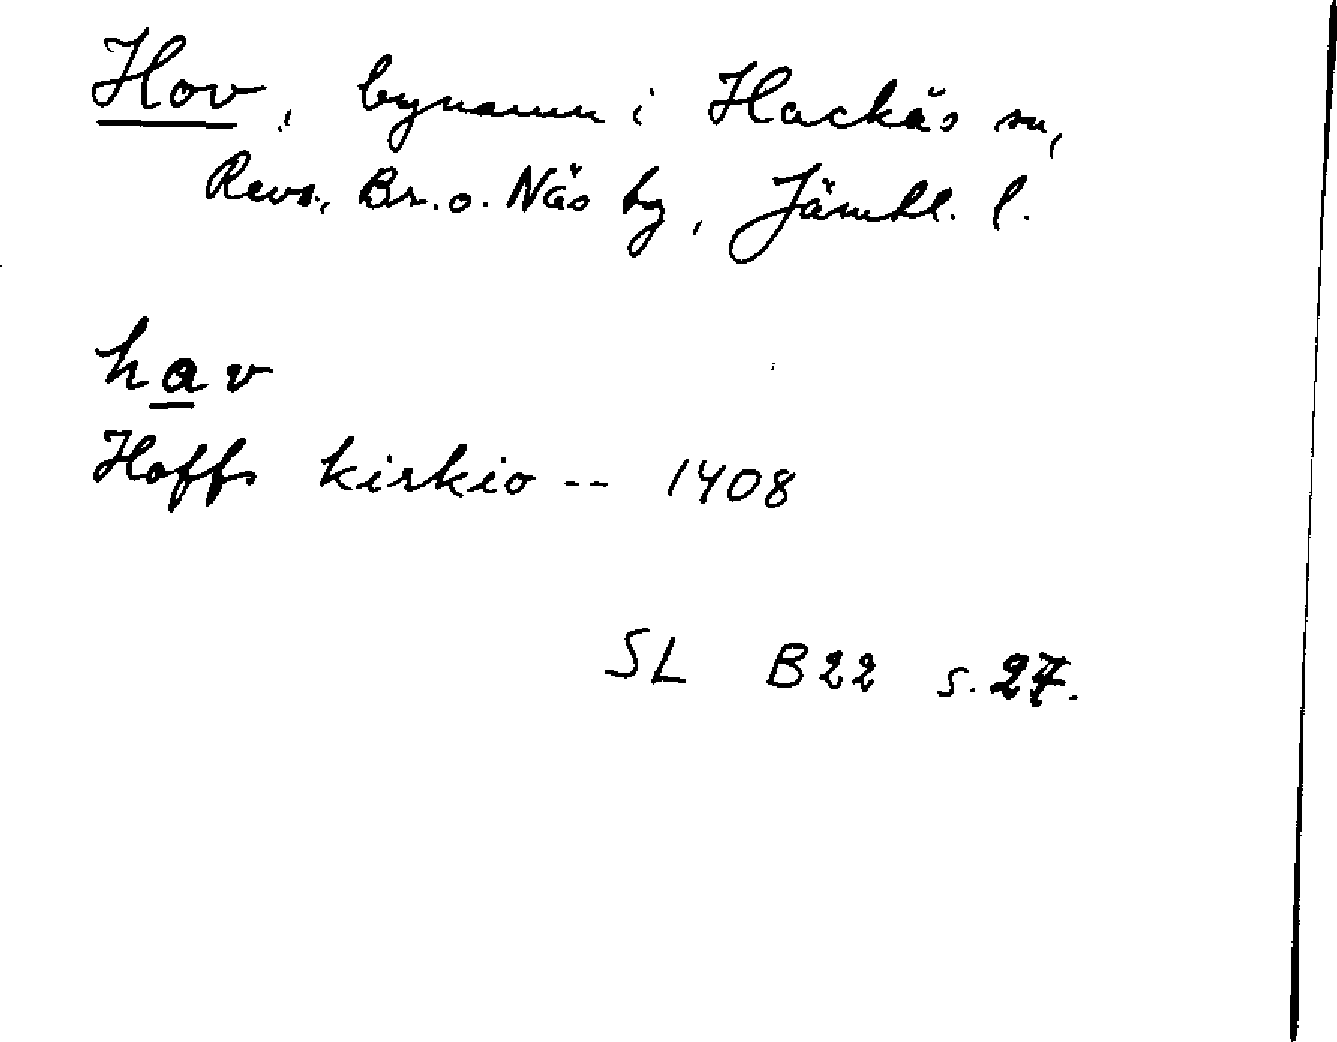 Hov, bynamn i Hackås sn,
Revs., Br. o. Näs tg, Jämtl. l.
hav
Hoffs kirkio -- 1408
SL B22 s. 27.